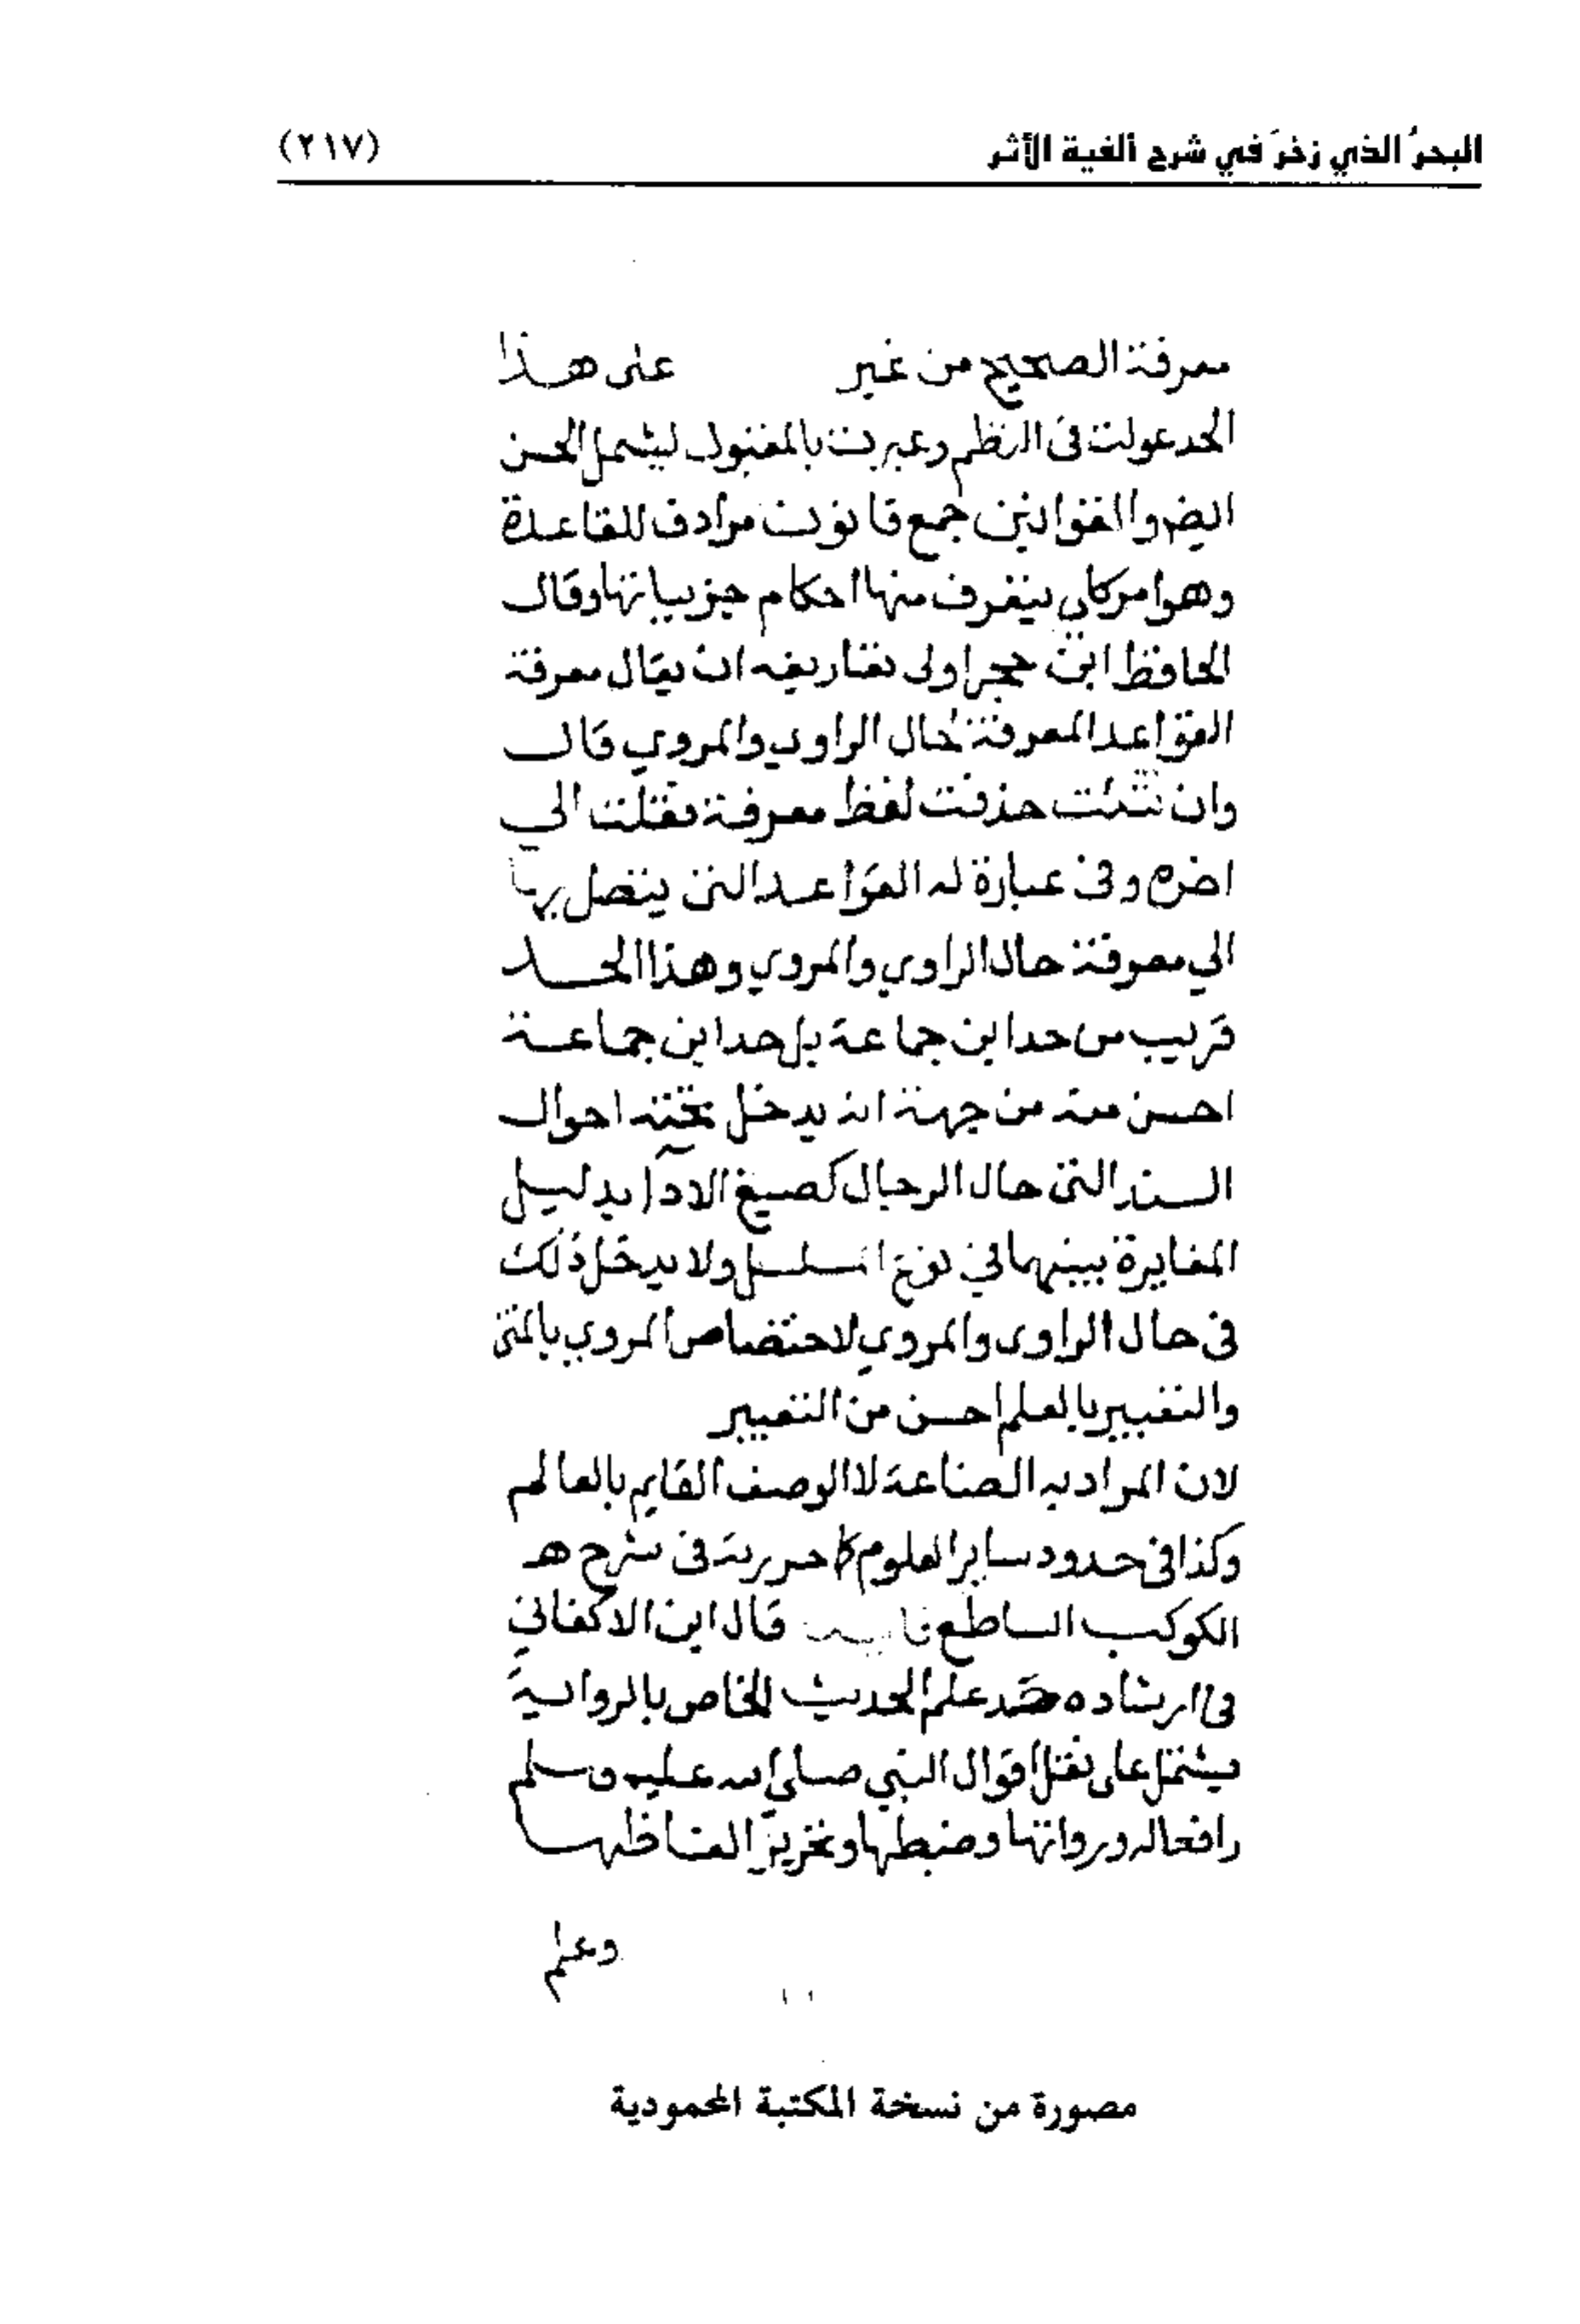 البحرُ الذي زخرَ في شرح ألفية الأثر
(٢١٧)
معرفة الصحيح من غير على هذا
الحد عولت فى النظم وعبرت بالمقبول ليشمل الحسن
ايضا والقوانين جمع قانون مرادف للقاعدة
وهو امر كلى يتعرف منها احكام جزيياتها وقال
الحافظ ابن حجر اولى تعاريفه ان يقال معرفة
القواعد المعرفة بحال الراوى والمروي قال
وان شئت حذفت لفظ معرفة فقلت الي
اخره وفى عبارة له القواعد التى يتصل بها
الي معرفة حال الراوي والمروي وهذا الحد
قريب من حد ابن جماعة بل حد ابن جماعة
احسن منه من جهة انه يدخل تحته احوال
السند التى حال الرجال كصيغ الادآ بدليل
المغايرة بينهما في نوع المسلسل ولا يدخل ذلك
فى حال الراوى والمروي لاختصاص المروي بالمتن
والتعبير بالعلم احسن من التعبير
لان المراد به الصناعة لا الوصف القايم بالعالم
وكذا فى حدود ساير العلوم كما حررته فى شرح
الكوكب الساطع قال ابن الاكفاني
فى ارشاده حد علم الحديث الخاص بالرواية
يشتمل على نقل اقوال النبي صلى الله عليه وسلم
وافعاله وروايتها وضبطها وتحرير الفاظها
وعلم
مصورة من نسخة المكتبة المحمودية